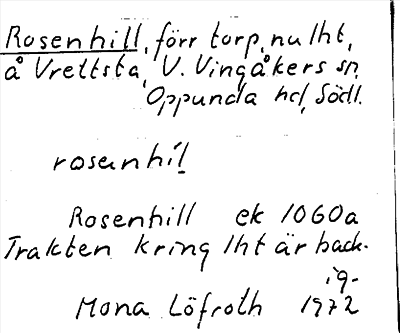 Rosenhill, förr torp, nu lht,
å Vrettsta, V. Vingåkers sn,
Oppunda hd, Södl.
rosenhil
Rosenhill ek 1060a
Trakten kring lht är back-
ig.
Mona Löfroth 1972